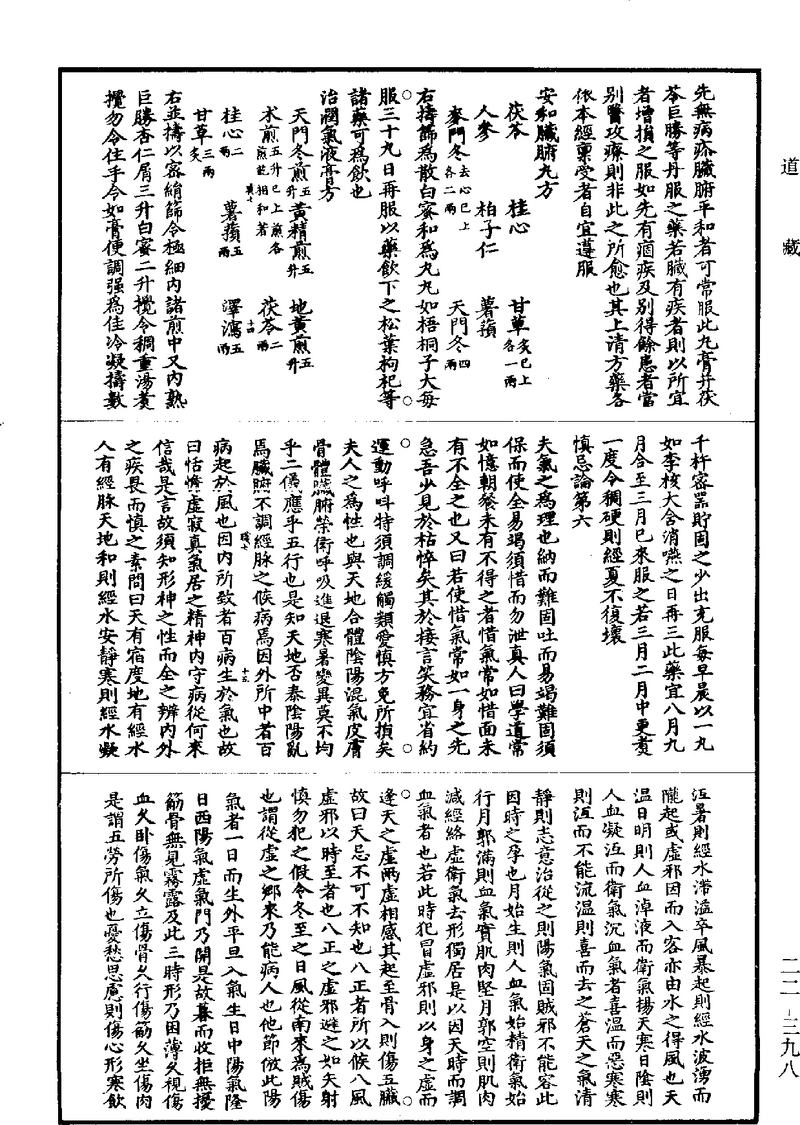 道藏
先無病疹臟腑平和者可常服此丸膏并茯
苓巨勝等丹服之藥若臟有疾者則以所宜
者增損之服如先有痼疾及別得餘患者當
別醫攻療則非此之所愈也其上清方藥各
依本經稟受者自宜遵服
安和臟腑丸方
茯苓 桂心 甘草炙已上各一兩
人參 柏子仁 薯蕷
麥門冬去心已上各二兩 天門冬四兩
右擣篩為散白蜜和為丸丸如梧桐子大每
服三十丸日再服以藥飲下之松葉枸杞等
諸藥可為飲也
治潤氣液膏方
天門冬煎五升 黃精煎五升 地黃煎五升
朮煎五升已上煎各煎能相和著 茯苓二兩
桂心二兩 薯蕷五兩 澤瀉五兩
甘草三兩炙
右並擣以密絹篩令極細內諸煎中又內熟
巨勝杏仁屑三升白蜜二升攪令稠重湯煑
攪勿令住手令如膏便調强為佳冷凝擣數
千杵密器貯固之少出充服每早晨以一丸
如李核大含消嚥之日再三此藥宜八月九
月合至三月已來服之若三月二月中更煑
一度令稠硬則經夏不復壞
慎忌論第六
夫氣之為理也納而難固吐而易竭難固須
保而使全易竭須惜而勿泄真人曰學道常
如憶朝餐未有不得之者惜氣常如惜面未
有不全之也又曰若使惜氣常如一身之先
急吾少見於枯悴矣其於接言笑務宜省約
運動呼吸特須調緩觸類愛慎方免所損矣
夫人之為性也與天地合體陰陽混氣皮膚
骨體臟腑榮衛呼吸進退寒暑變異莫不均
乎二儀應乎五行也是知天地否泰陰陽亂
焉臟腑不調經脉之候病焉因外所中者百
病起於風也因內所致者百病生於氣也故
曰恬憺虛寂真氣居之精神內守病從何來
信哉是言故須知形神之性而全之辨內外
之疾畏而慎之素問曰天有宿度地有經水
人有經脉天地和則經水安靜寒則經水凝
沍暑則經水滯溢卒風暴起則經水波湧而
隴起或虛邪因而入客亦由水之得風也天
温日明則人血淖液而衛氣揚天寒日陰則
人血凝沍而衛氣沉血氣者喜温而惡寒寒
則沍而不能流温則喜而去之蒼天之氣清
靜則志意治從之則陽氣固賊邪不能容此
因時之孕也月始生則人血氣始精衛氣始
行月郭滿則血氣實肌肉堅月郭空則肌肉
減經絡虛衛氣去形獨居是以因天時而調
血氣者也若此時犯冒虛邪則以身之虛而
逢天之虛兩虛相感其起至骨入則傷五臟
故曰天忌不可不知也八正者所以候八風
虛邪以時至者也八正之虛邪避之如矢射
慎勿犯之假令冬至之日風從南來為賊傷
也謂從虛之鄉來乃能病人也他節倣此陽
氣者一日而生外平旦入氣生日中陽氣隆
日西陽氣虛氣門乃閉是故暮而收拒無擾
筋骨無見霧露及此三時形乃困薄久視傷
血久卧傷氣久立傷骨久行傷筋久坐傷肉
是謂五勞所傷也憂愁思慮則傷心形寒飲
二二－三九八